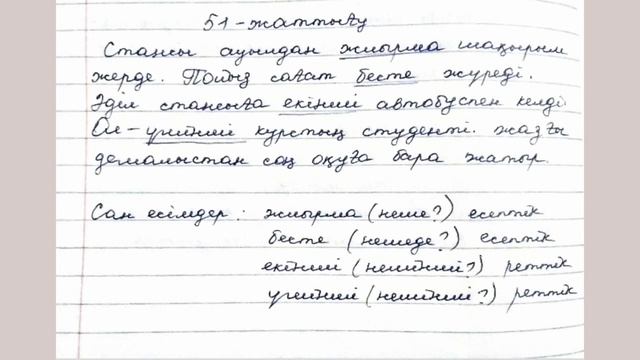 51-жаттығу
Стансы ауылдан жиырма шақырым
жерде. Пойыз сағат бесте жүреді.
Әділ стансыға екінші автобуспен келді.
Ол-үшінші курстың студенті. жазғы
демалыстан соң оқуға бара жатыр.
Сан есімдер: жиырма (неше?) есептік
бесте (нешеде?) есептік
екінші (нешінші?) реттік
үшінші (нешінші?) реттік